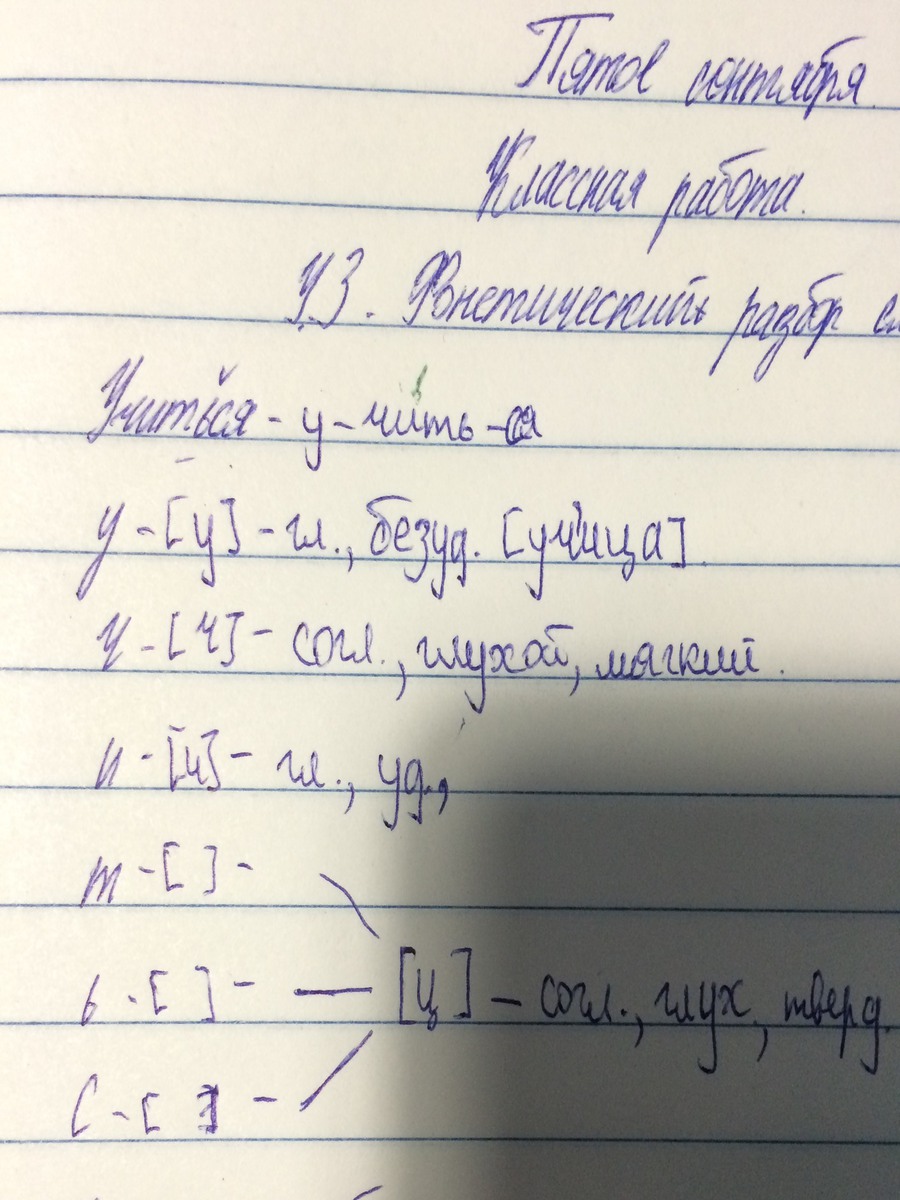 Пятое сентября.
Классная работа.
У3. Фонетический разбор сл
Учиться - у - чить - ся
у - [у] - гл., безуд. [уч'ица]
ч - [ч] - согл., глухой, мягкий.
и - [и] - гл., уд.,
т - [ ] -
ь - [ ] - [ц] - согл., глух, тверд.
с - [ ] -